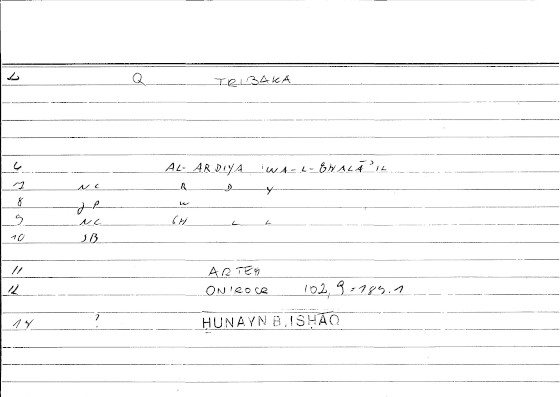 Q TRIBAKA
6 AL-ARDIYA WA-L-GHALĀ'IL
7 NC R D Y
8 JP W
9 NC GH L L
10 JB
11 ARTEM
12 ONIROCR 102,9=189.1
14 ? HUNAYN B. ISHAQ